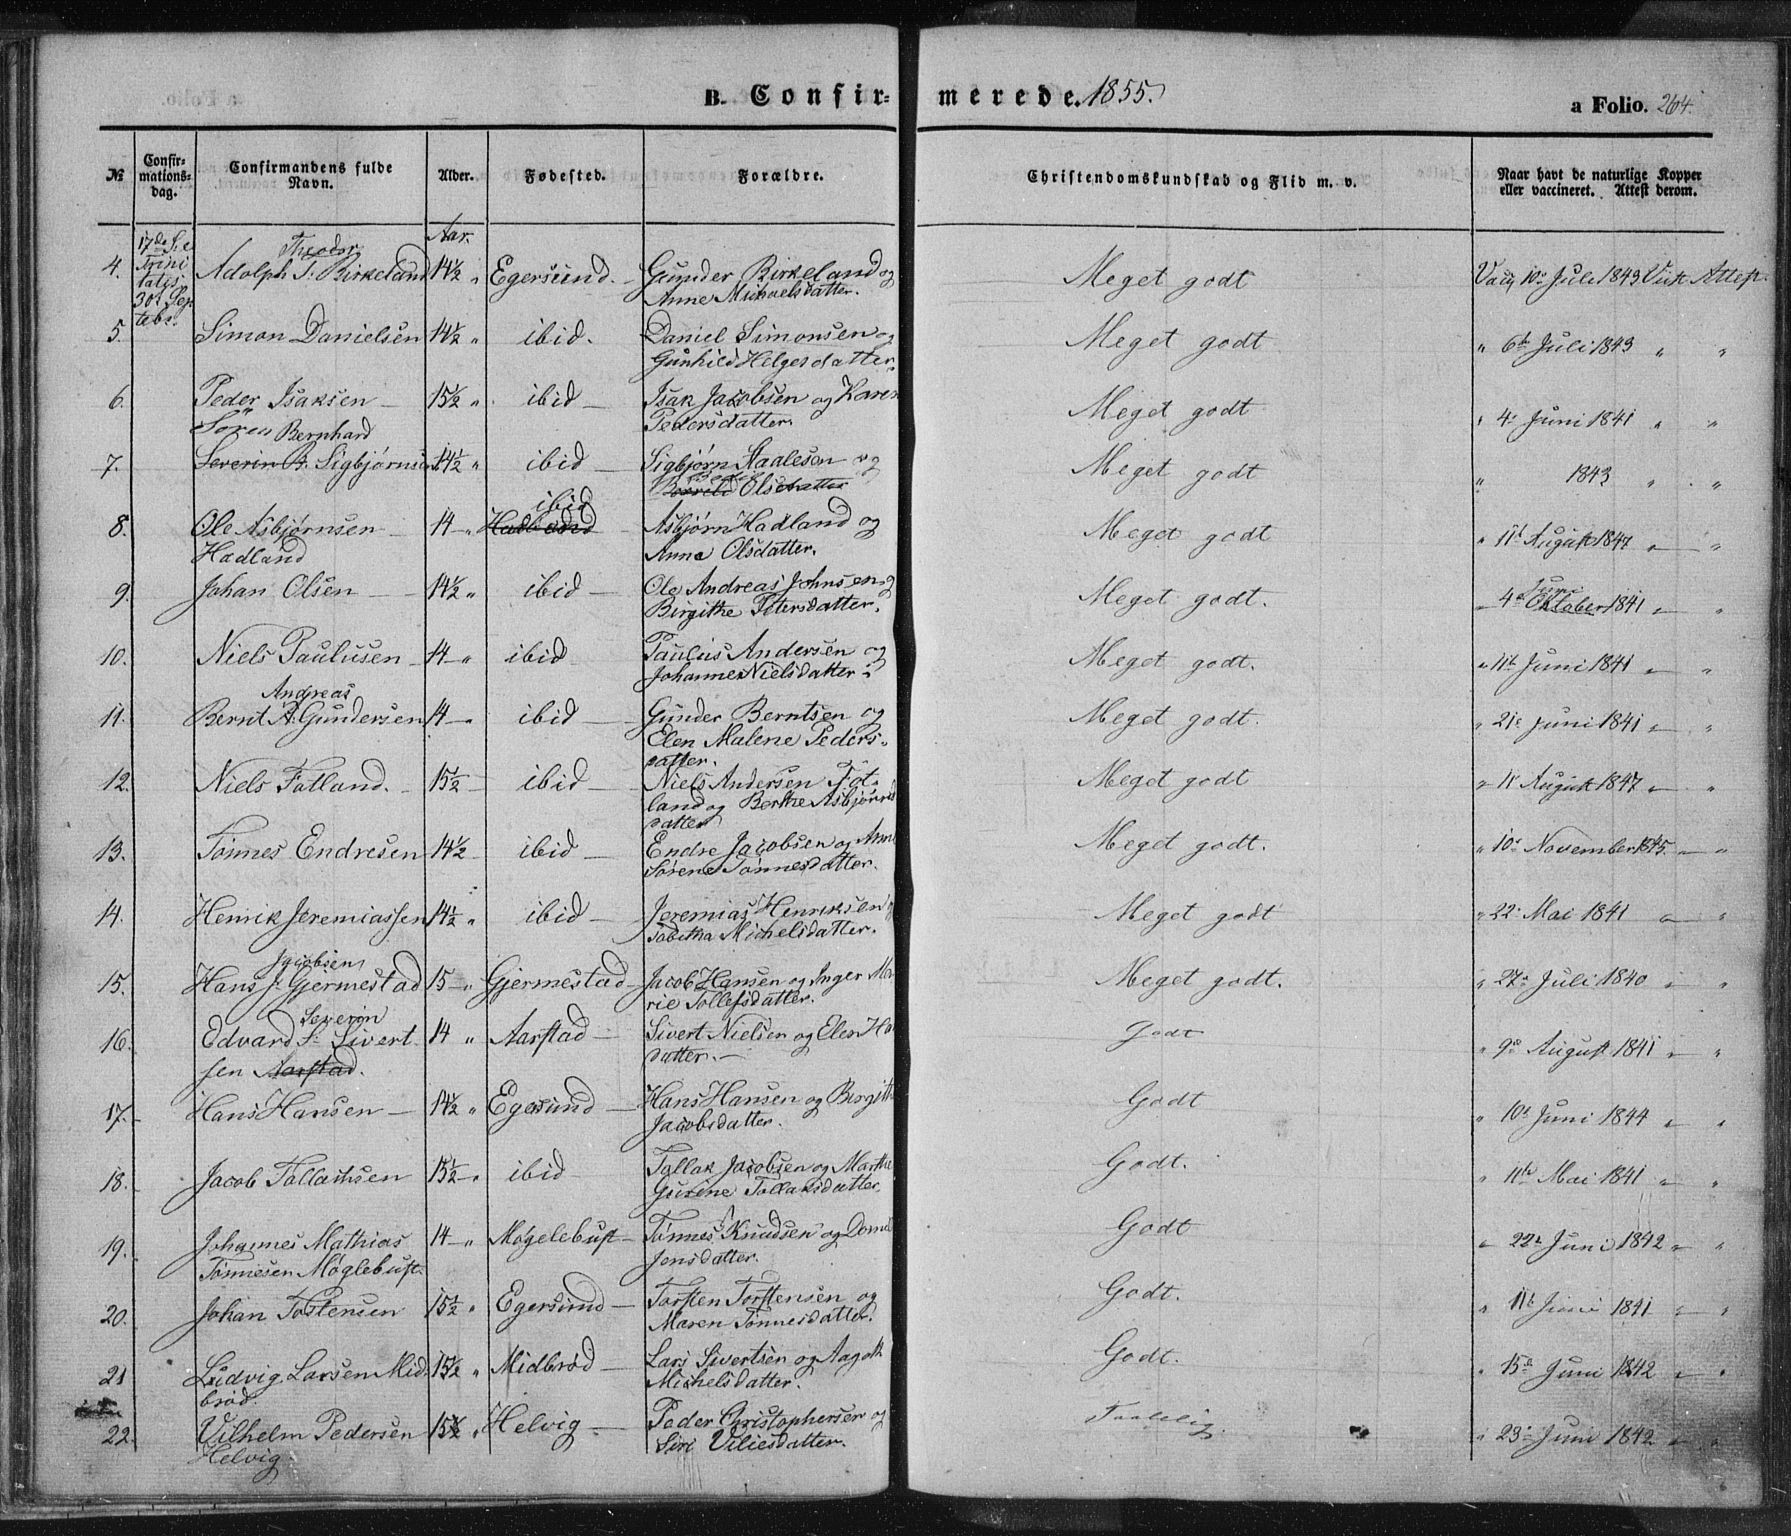 B. Confirmerede. 1855.
a Folio. 264.
№ Confirmations-dag. Confirmandens fulde Navn. Alder. Fødested. Forældre. Christendomskundskab og Flid m. v. Naar havt de naturlige Kopper eller vaccineret. Attest derom.
17de S. e. Trinitatis 30t Septebr.
Aar.
Theodor
4. Adolph T. Birkeland 14½ " Egersund. Gunder Birkeland og Meget godt Vacc. 10de Juli 1843 Vick Attest
Anne Michaelsdatter.
5. Simon Danielsen 14½ " ibid. Daniel Simonsen og Meget godt " 6te Juli 1843 " "
Gunhild Helgesdatter.
6. Peder Isaksen 15½ " ibid Isak Jacobsen og Karen Meget godt " 4de Juni 1841 " "
Pedersdatter.
Sören Bernhard
7. Severin B. Sigbjørnsen 14½ " ibid Sigbjørn Aadlesen og Meget godt " 1843 " "
Olsdatter
ibid
8. Ole Asbjørnsen 14 " Hadland Asbjørn Hadland og Meget godt " 11te August 1847 " "
Hadland Anna Olsdatter.
9. Johan Olsen 14½ " ibid Ole Andreas Johnsen og Meget godt. " 4de Oktober 1841 " "
Juni
Birgithe Petersdatter.
10. Niels Paulusen 14 " ibid Paulus Andersen og Meget godt. " 11te Juni 1841 " "
Johanne Nielsdatter.
Andreas
11. Bernt A. Gundersen 14 " ibid Gunder Berntsen og Meget godt. " 21de Juni 1841 " "
Elen Malene Peders-
datter.
12. Niels Fotland. 15½ ibid Niels Andersen Fot- Meget godt " 11te August 1847 " "
land og Berthe Asbjørns
datter
13. Tønnes Endresen 14½ ibid Endre Jacobsen og Anne Meget godt. " 10de November 1845. " "
Sørene Tønnesdatter.
14. Henrik Jeremiassen 14½ " ibid Jeremias Henriksen og Meget godt " 22de Mai 1841 " "
Tabitha Michelsdatter.
Jacobsen
15. Hans J. Gjermestad 15 " Gjermestad Jacob Hansen og Inger Ma Meget godt. " 27de Juli 1840 " "
rie Tollefsdatter.
Severin
16. Edvard S. Sivert 14 " Aarstad Sivert Nielsen og Elen Ha Godt " 9de August 1841 " "
sen Aarstad. datter.
17. Hans Hansen 14½ " Egersund Hans Hansen og Birgitte Godt " 10de Juni 1844 " "
Jacobsdatter.
18. Jacob Tollachsen 15½ " ibid Tollak Jacobsen og Marthe Godt. " 11te Mai 1841 " "
Gurine Tollaksdatter.
19. Johannes Mathias 14 " Møgelebust Tønnes Knudsen og Godt " 22de Juni 1842 " "
Tønnesen Møglebust. Jensdatter.
20. Johan Tostensen 15½ " Egersund Torsten Torstensen og Godt. " 11te Juni 1841 " "
Maren Tønnesdatter.
21 Ludvig Larsen Mid 15½ " Midbrød Lars Sivertsen og Aagoth Godt. " 15de Juni 1842 " "
brød. Michelsdatter.
22. Vilhelm Pedersen 15½ " Helvig Peder Christophersen og Taalelig " 23de Juni 1842 " "
Helvig. Siri Viliesdatter.